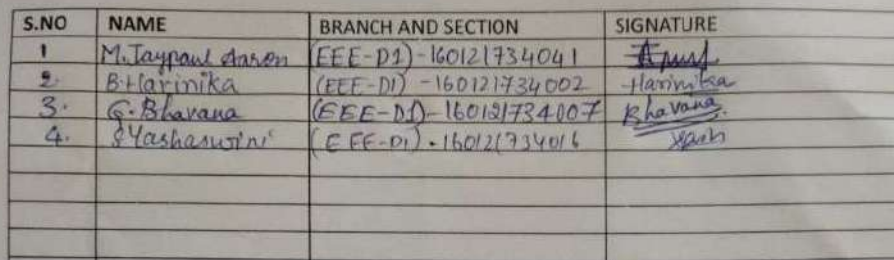 S.NO NAME BRANCH AND SECTION SIGNATURE
1 M. Jaypaul Aaron (EEE-D1)-160121734041
2. B. Harinika (EEE-D1) -160121734002 Harinika
3. G. Bhavana (EEE-D1)-160121734007 Bhavana
4. S Yashaswini (EEE-D1) - 160121734016 Yash